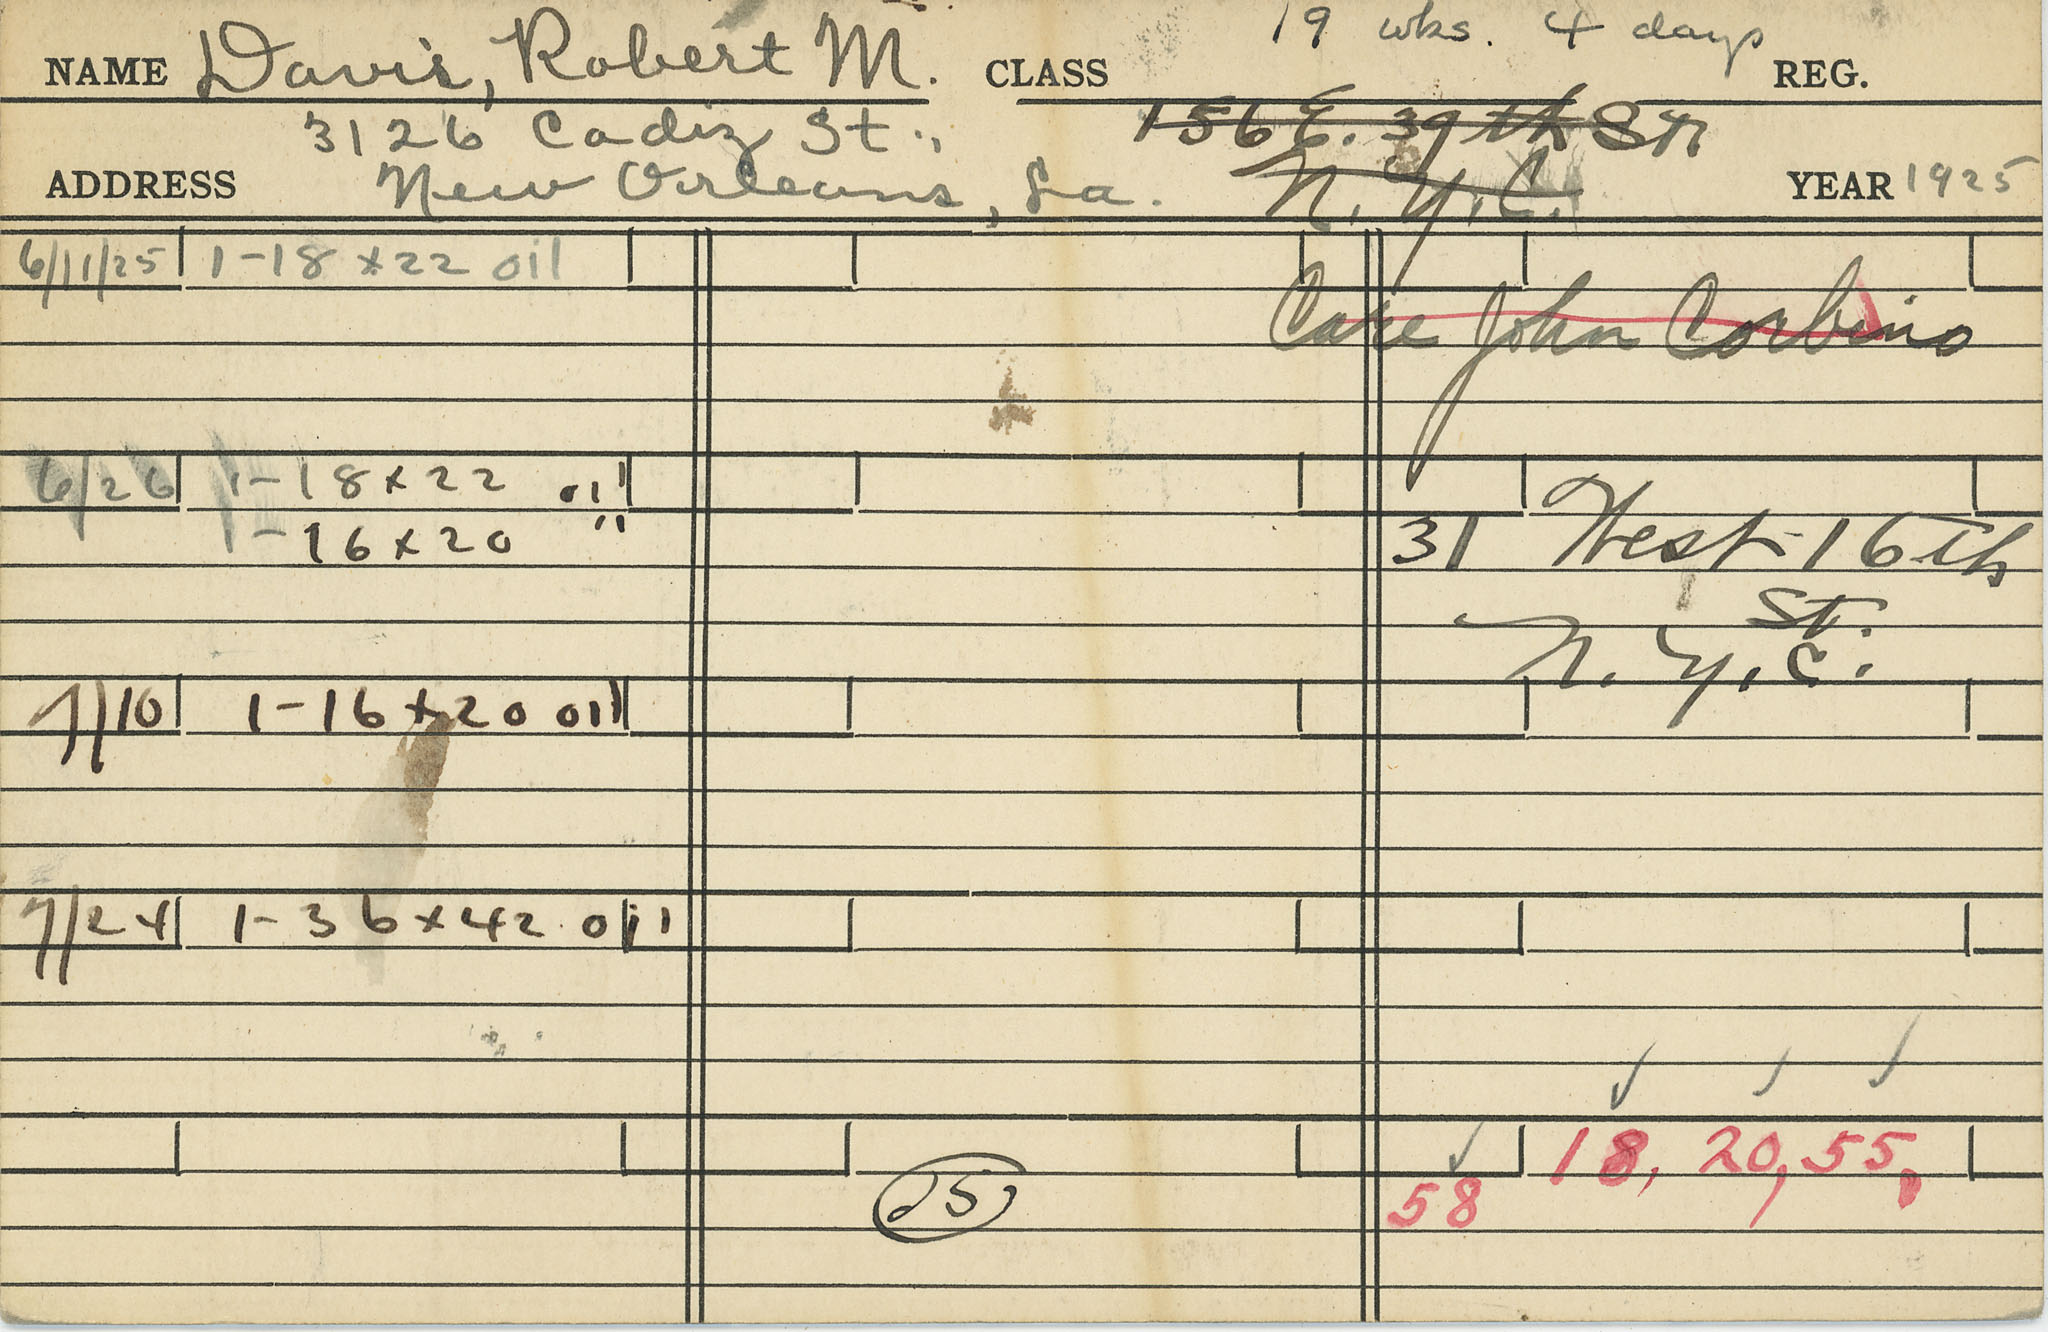 19 wks. 4 days
NAME Davis, Robert M. CLASS REG.
3126 Cadiz St., 156 E. 39th St
ADDRESS New Orleans, La. N.Y.C. YEAR 1925
6/11/25 1-18x22 oil
Care John Corbino
6/26 1-18x22 oil
1-16x20 "
31 West 16th
St.
N.Y.C.
7/10 1-16x20 oil
7/24 1-36x42 oil
18, 20, 55,
58
25